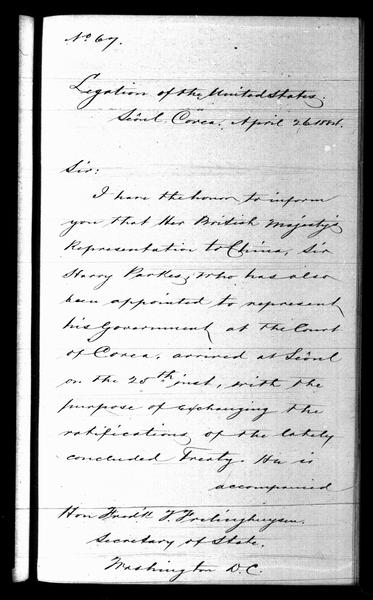 No 67.
Legation of the United States.
Söul, Corea, April 26 1884.
Sir:
I have the honor to inform
you that Her British Majesty's
Representation to China, Sir
Harry Parkes, who has also
been appointed to represent
his Government at the Court
of Corea, arrived at Söul
on the 20th inst, with the
purpose of exchanging the
ratifications of the lately
concluded Treaty. He is
accompanied
Hon Fredk T Frelinghuysen.
Secretary of State.
Washington D.C.